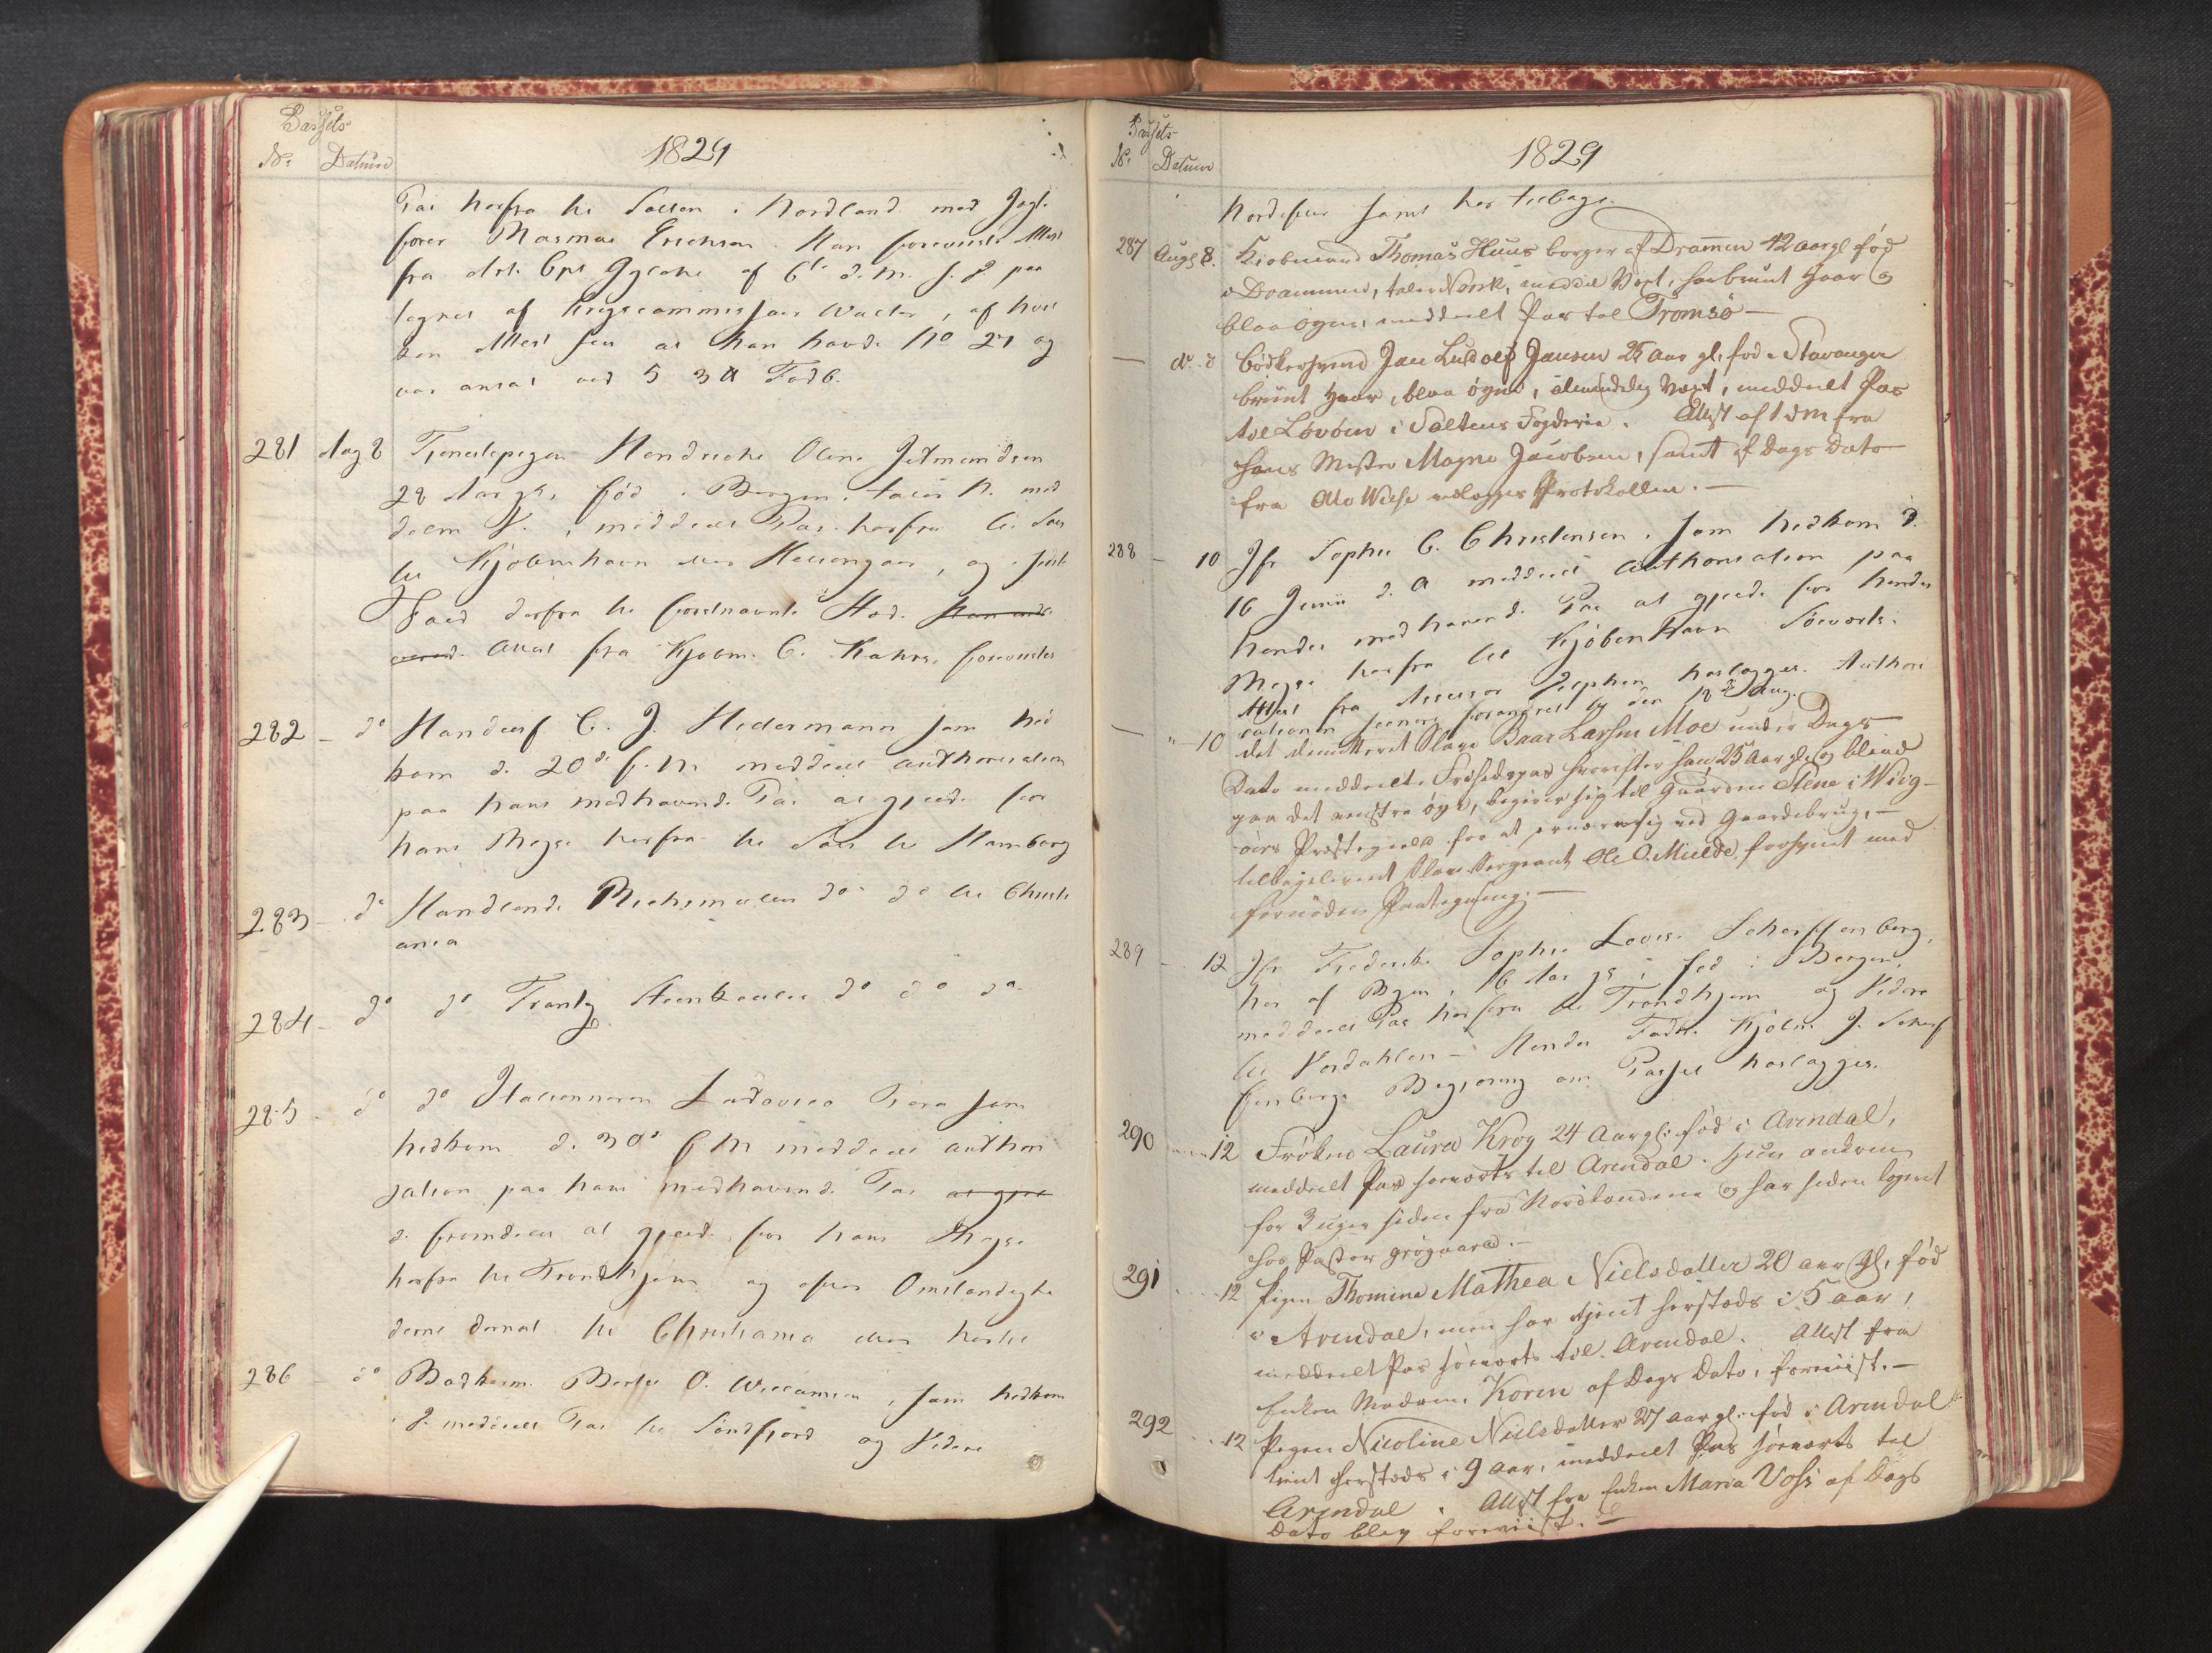 Passets
No Datum
1829
Pas herfra til Salten i Nordland med Jagt
fører Rasmus Erichsen. Han foreviiste Attest
fra Art: Cpt Gylche af 6te d. M. s. J. paa
tegnet af Krigscommissair Walter, af hvil
ken Attest sees at han havde No 21 og
var ansat ved 5
281 Aug 8 Tjenestepigen Hendricke Oline Jetmundsen
28 Aar gl, fød i Bergen, taler N. med
deelt Pas herfra til Søes
til Kjøbenhavn eller Helsingøer, og
Fald derfra til forstnævnte Sted.
Attest fra Kjøbm. C. Kahrs foreviistes
282 – do Handelsf. C. J. Hedermann som hid
kom d. 20de f. M. meddeelt Authorisation
paa hans medhavende Pas at gjelde for
hans Reyse herfra til Søes til Hamborg
283 – do Handlende do do til Christi
ania
284 – do do Frantz Steenbeuler do do do
285 – do do Italieneren Ludovico som
hidkom d. 30te f M meddeelt Authori
sation paa hans medhavende Pas at gjel
de fremdeles at gjelde for hans Reyse
herfra til Trondhjem og efter Omstændighe
derne derved til Christiania eller hertil
286 – do Badskerm. O. Willumsen, som hidkom
i J. meddeelt Pas til Søndfjord og Videre
Passets
No Datum
1829
Nordefter samt her tilbage.
287 Augs 8. Kiøbmand Thomas Huus borger af Drammen 42 aar gl fød
i Drammen, taler Norsk, middel Vext, har bruunt Haar og
blaa øyne, meddeelt Pas til Tromsø –
— do. 8 Bødkersvend Jan Ludolf Jansen 25 Aar gl, fød i Stavanger
bruunt Haar, blaa øyne, almindelig Vext, meddeelt Pas
til Lovøen i Saltens Fogderie. Attest af 1 d M fra
hans Mester Magne Jacobsen, samt af Dags Dato
fra Ole Wiese vedlægges Protokollen. —
288 – 10 Jfr Sophie C. Christensen, som hidkom d.
16 Junii d. A meddeelt Authorisation paa
hendes medhavende Pas at gjelde for hendes
Reyse herfra til Kjøbenhavn Søeverts.
Attest fra Assessor herlægges. Authori
sationen senere forandret til den 12te Aug.
— " – 10 det dimitteret Slave Baar Larsen Moe under Dags
Dato meddeelt Frihedspas hvorefter han, 25 Aar gl, og blind
paa det venstre øye, begiver sig til Gaarden Stene i Wiig-
øers Præstegield for at ernære sig ved Gaardsbrug, –
tilbageleveret Slave Sergeant Ole O. Mielde forsynet med
fornøden Paategning. —
289 – 12 Jfr Frederikke Sophie Lovise Scherffenberg,
her af Byen, 16 Aar gl, fød i Bergen,
meddeelt Pas herfra til Trondhjem og Videre
til Verdahlen – Hendes Fader Kjøbm. J. Scherf
fenbergs Begjæring om Passet herlægges.
290 12 Frøken Laura Krog 24 Aar gl: fød i Arendal,
meddeelt Pas søeverts til Arendal. Hun ankom
for 3 uger siden fra Nordlandene og har siden logeret
hos Pastor Grøgaard. –
291 12 Pigen Thomine Mathea Nielsdatter 20 aar gl, fød
i Arendal, men har tjent herstæds i 5 aar,
meddeelt Pas søeverts til Arendal. Attest fra
Enken Madam Koren af Dags Dato, foreviist. –
292 12 Pigen Nicoline Nielsdatter 27 aar gl. fød i Arendal
tient herstæds i 9 Aar, meddeelt Pas søeverts til
Arendal. Attest fra Enken Maria Voss af Dags
Dato blev foreviist. –